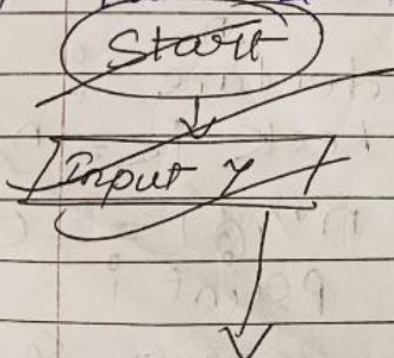 Start
Input y